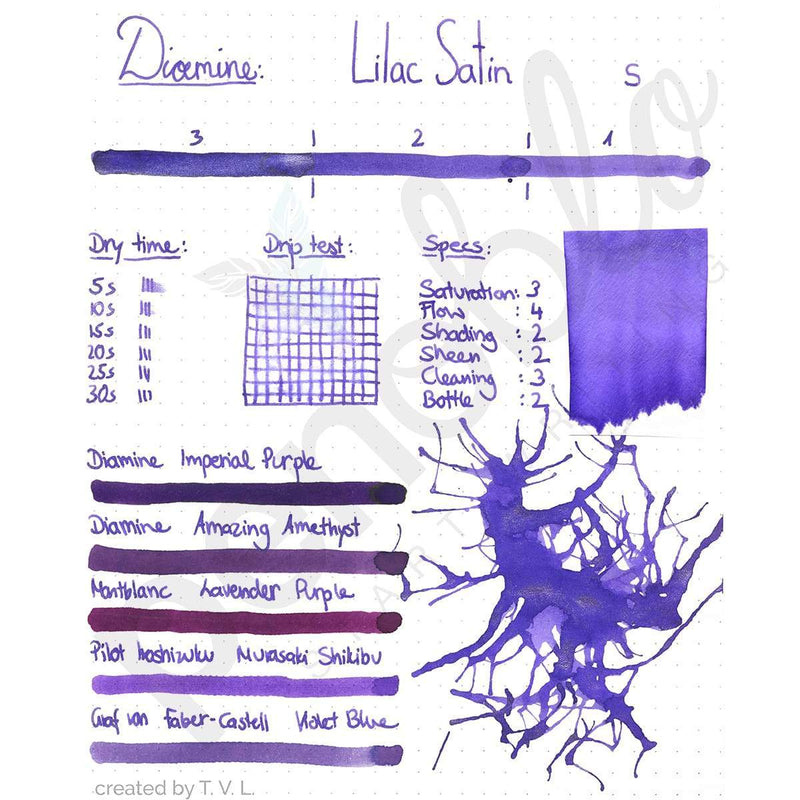 Diamine: Lilac Satin S
3 | 2 | 1
Dry time:
5s
10s
15s
20s
25s
30s
Drip test:
Specs:
Saturation: 3
Flow : 4
Shading : 2
Sheen : 2
Cleaning : 3
Bottle : 2
Diamine Imperial Purple
Diamine Amazing Amethyst
Montblanc Lavender Purple
Pilot Iroshizuku Murasaki Shikibu
Graf von Faber-Castell Violet Blue
created by T. V. L.
penoblo